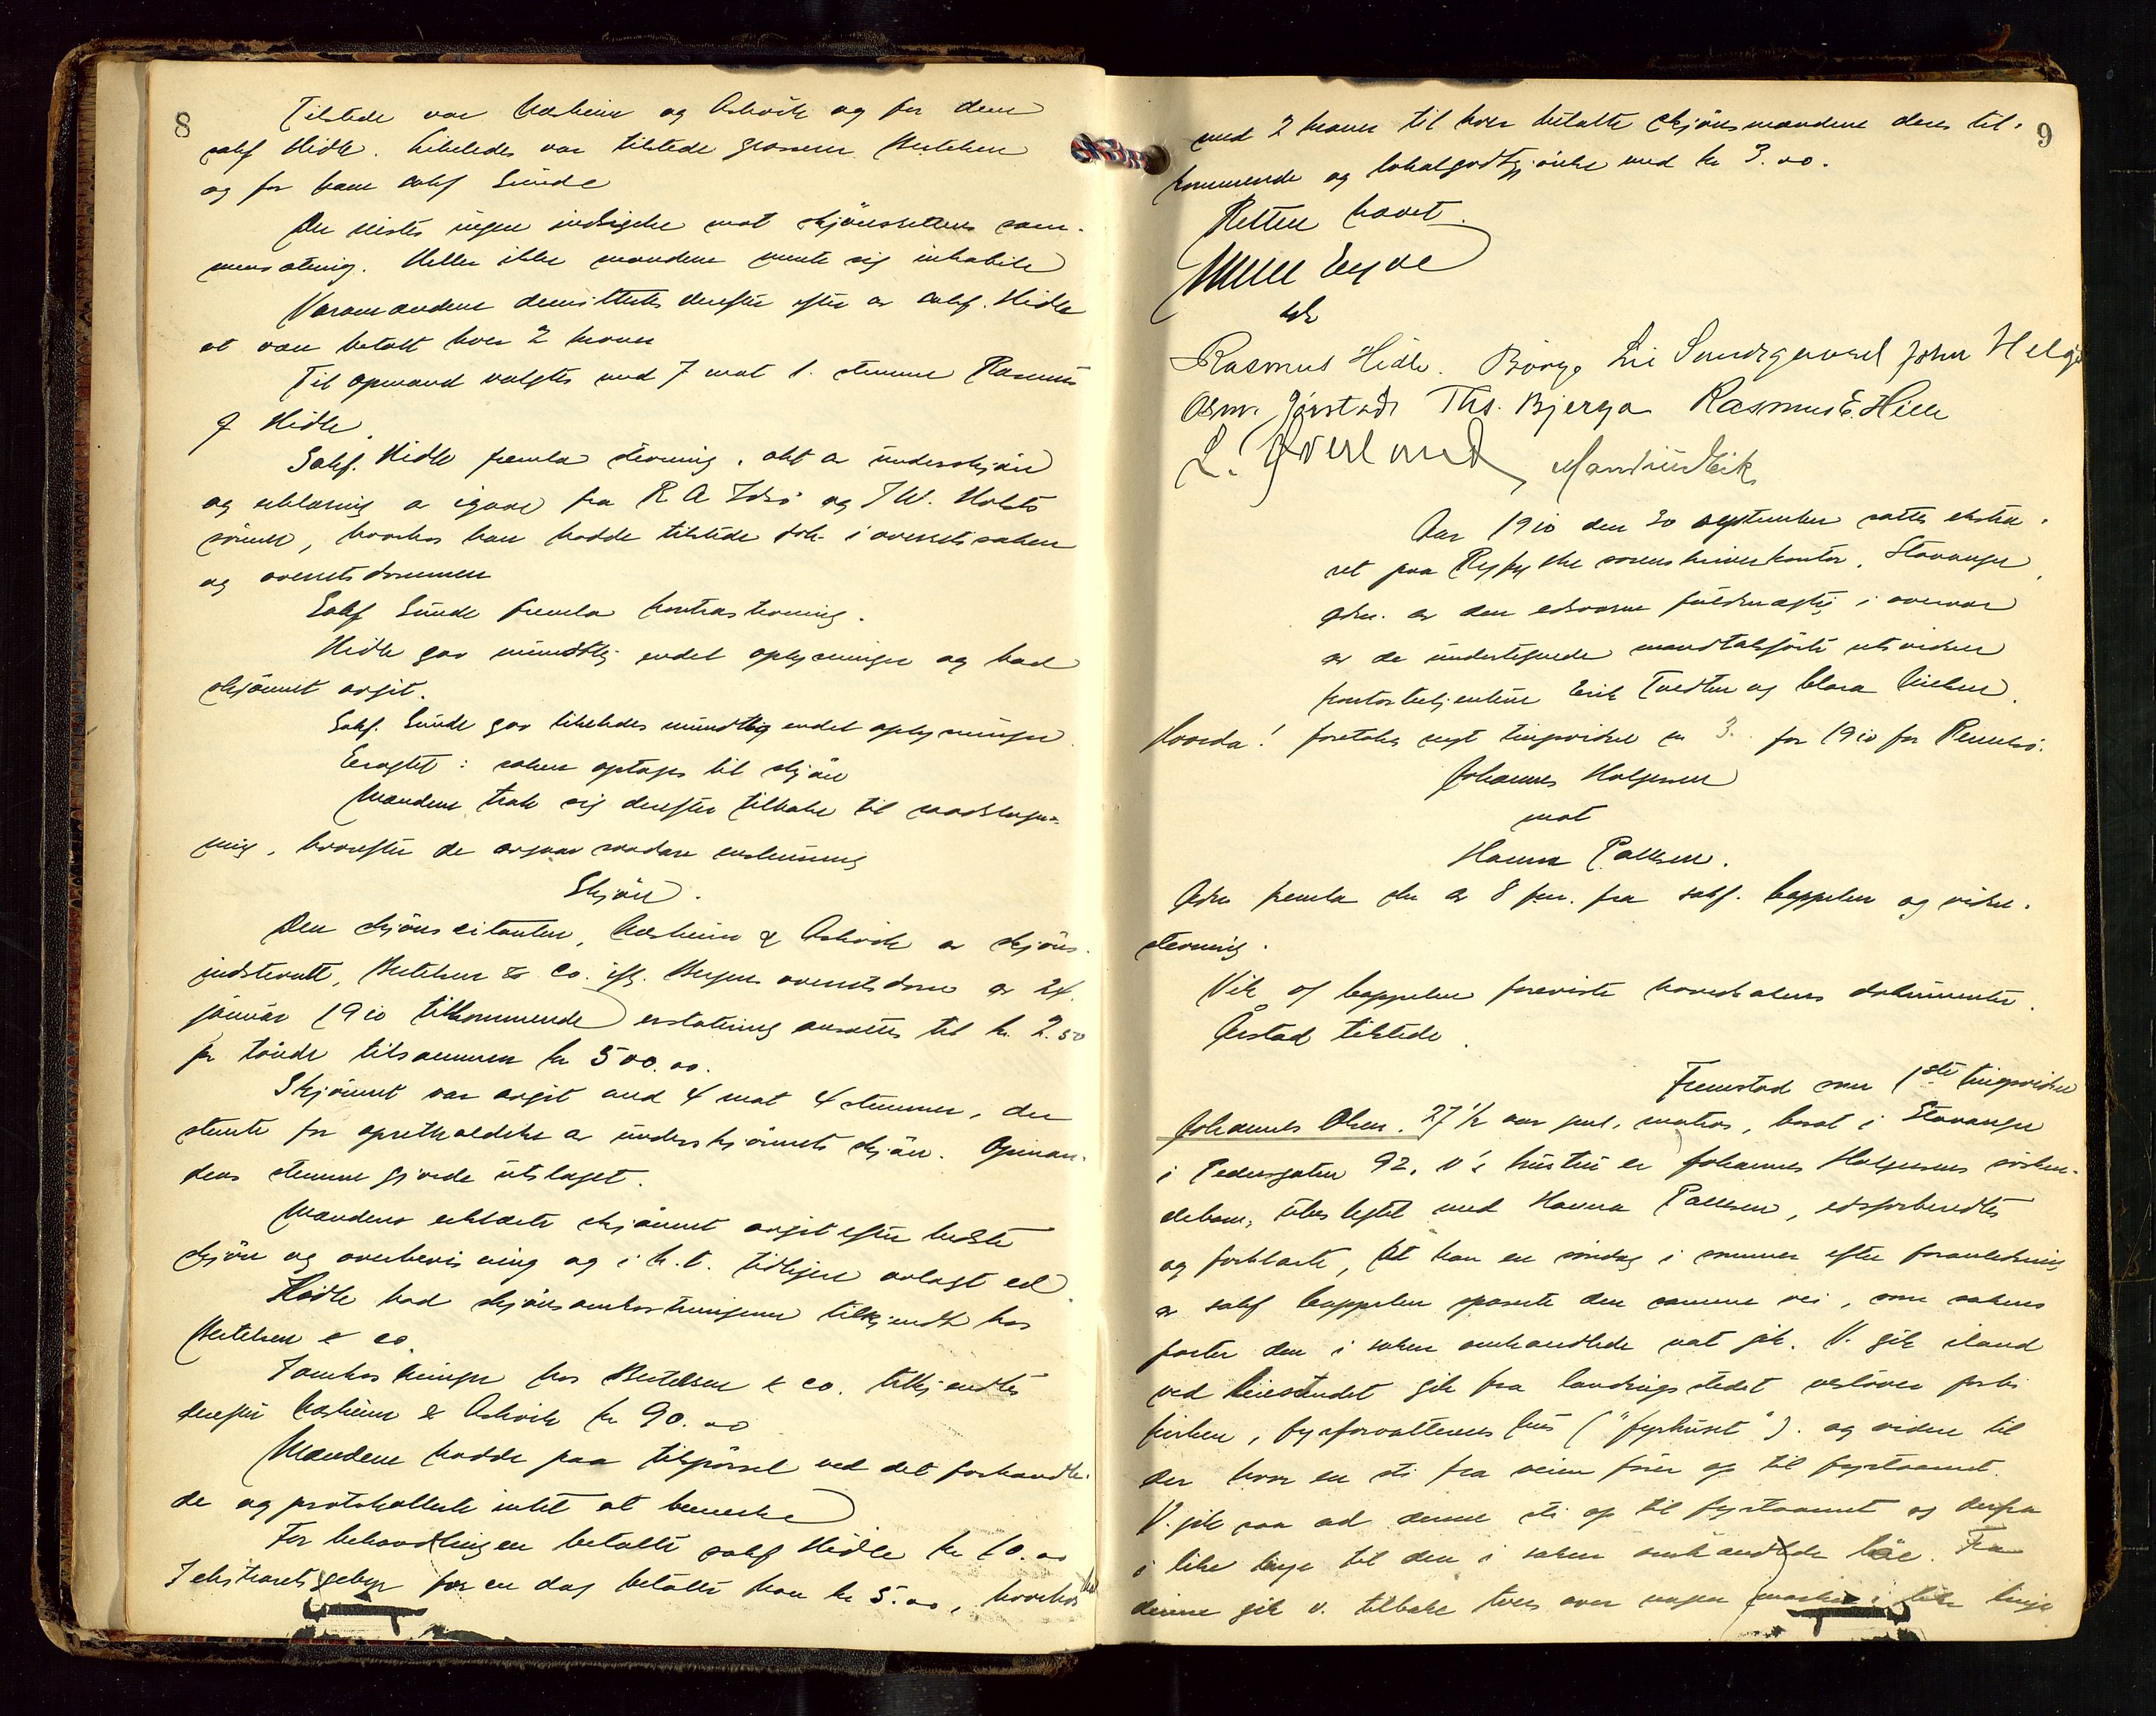 8
Tilstede var Næsheim og Askvik og for dem
sakf Hidle. Likeledes var tilstede grosserer Bertelsen
og for ham sakf Sunde
Der reistes ingen indsigelse mot skjønsrettens sam-
mensætning. Heller ikke mændene mente sig inhabile
Varamændene demittertes derefter efter av sakf. Hidle
at være betalt hver 2 kroner
Til opmand valgtes med 7 mot 1. stemme Rasmus
Hidle.
Sakf. Hidle fremla stevning, akt av underskjøn
og erklæring av igaar fra R A Idsø og I W. Holsts
sønner, hvorhos han hadde tilstede dok. i overretssaken
og overretsdommen
Sakf Sunde fremla kontrastevning.
Hidle gav mundtlig endel oplysninger og bad
skjønnet avgit.
Sakf. Sunde gav likeledes mundtlig endel oplysninger.
Eragtet: saken optages til skjøn
Mændene trak sig derefter tilbake til raadslag-
ning, hvorefter de avgav saadan enstemmig
Skjøn.
Den skjønscitanten, Næsheim & Askvik av skjøns-
indstevnte, Bertelsen & Co. ifl. Bergens overretsdom av 24.
januar 1910 tilkommende erstatning ansættes til kr. 2.50
pr tønde tilsammen kr 500.00.
Skjønnet var avgit med 4 mot 4 stemmer, der
stemte for opretholdelse av underskjønnets skjøn. Opman-
dens stemme gjorde utslaget.
Mændene erklærte skjønnet avgit efter bedste
skjøn og overbevisning og i h.t. tidligere avlagt ed.
Hidle bad skjønsomkostningerne tilkjendt hos
Bertelsen & co.
I omkostninger hos Bertelsen & co. tilkjendtes
derefter Næsheim & Askvik kr 90.00
Mændene hadde paa tilspørsel ved det forhandle-
de og protokollerte intet at bemerke
For behandlingen betalte sakf Hidle kr 10.00
I ekstraretsgebyr for en dag betalte han kr 5.00, hvorhos
9
med 2 kroner til hver betalte skjønsmændene deres til-
kommende og lokalgodtgjørelse med kr 3.00.
Retten hævet.
Rasmus Hidle. Børge Lie Sundgaard John Helgø
Asm. Jørstad Ths. Bjerga Rasmus E. Hille
L. Øverland
Aar 1910 den 30 september sattes ekstra-
ret paa Ryfylke sorenskriverkontor, Stavanger,
adm. av den edsvorne fuldmægtig i overvær
av de undertegnede mandtalsførte retsvidner
kontorbetjentene Erik Tvedten og Clara Nielsen.
Hvorda! foretokes nyt tingsvidne nr 3. for 1910 for Rennesø.
Johannes Holgersen
mot
Hanna Paulsen.
Adm fremla skr av 8 ſm. fra sakf. Cappelen og vidne-
stevning.
Vik of Cappelen foreviste hovedsakens dokumenter.
Ørstad tilstede.
Fremstod som 1ste tingsvidne
Johannes Olsen. 27 ½ aar gml. matros, bosat i Stavanger
i Pedersgaten 92. V's hustru er Johannes Holgersens søsken-
debarn, ubeslegtet med Hanna Paulsen, edsforberedtes
og forklarte, at han en søndag i sommer efter foranledning
av sakf Cappelen opsøkte den samme vei, som sakens
parter den i saken omhandlede nat gik. V. gik iland
ved gik fra landingsstedet vestover forbi
kirken, fyrforvalterens hus ("fyrhuset"). og videre til
der hvor en sti fra veien fører op til fyrtaarnet.
V. gik saa ad denne sti op til fyrtaarnet og derfra
i like linje til den i saken omhandlede løe. Fra
denne gik v. tilbake tvers over nogen marker i like linje